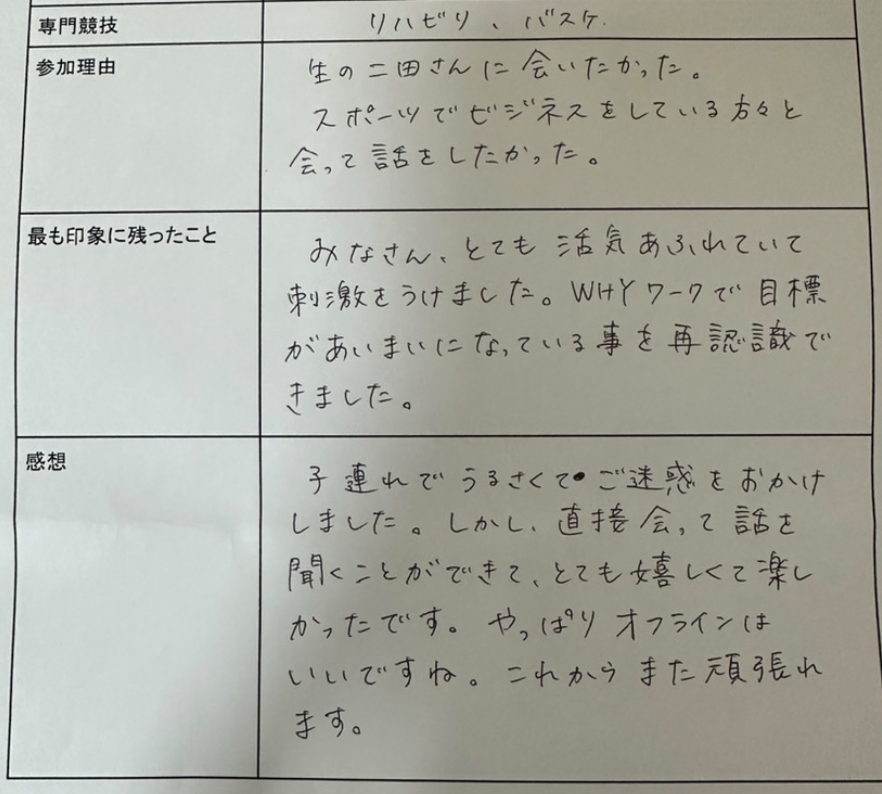 専門競技
リハビリ、バスケ.
参加理由
生の二田さんに会いたかった。
スポーツでビジネスをしている方々と
会って話をしたかった。
最も印象に残ったこと
みなさん、とても活気あふれていて
刺激をうけました。WHYワークで目標
があいまいになっている事を再認識で
きました。
感想
子連れでうるさくてご迷惑をおかけ
しました。しかし、直接会って話を
聞くことができて、とても嬉しくて楽し
かったです。やっぱりオフラインは
いいですね。これからまた頑張れ
ます。